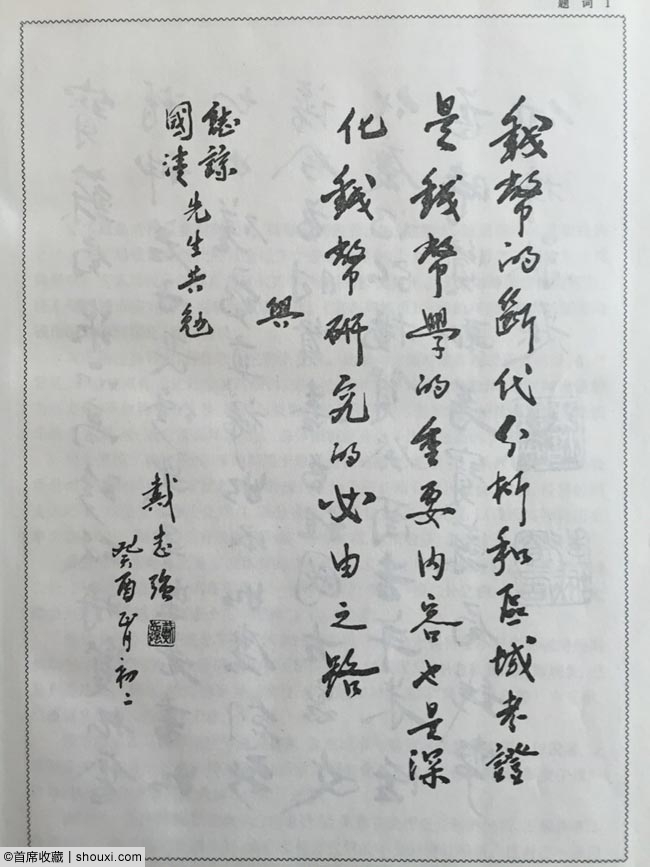 题词 1
錢幣的斷代分析和區域考證
是錢幣學的重要内容也是深
化錢幣研究的必由之路
與
先生共勉
戴志强
癸酉正月初二
©首席收藏 | shouxi.com